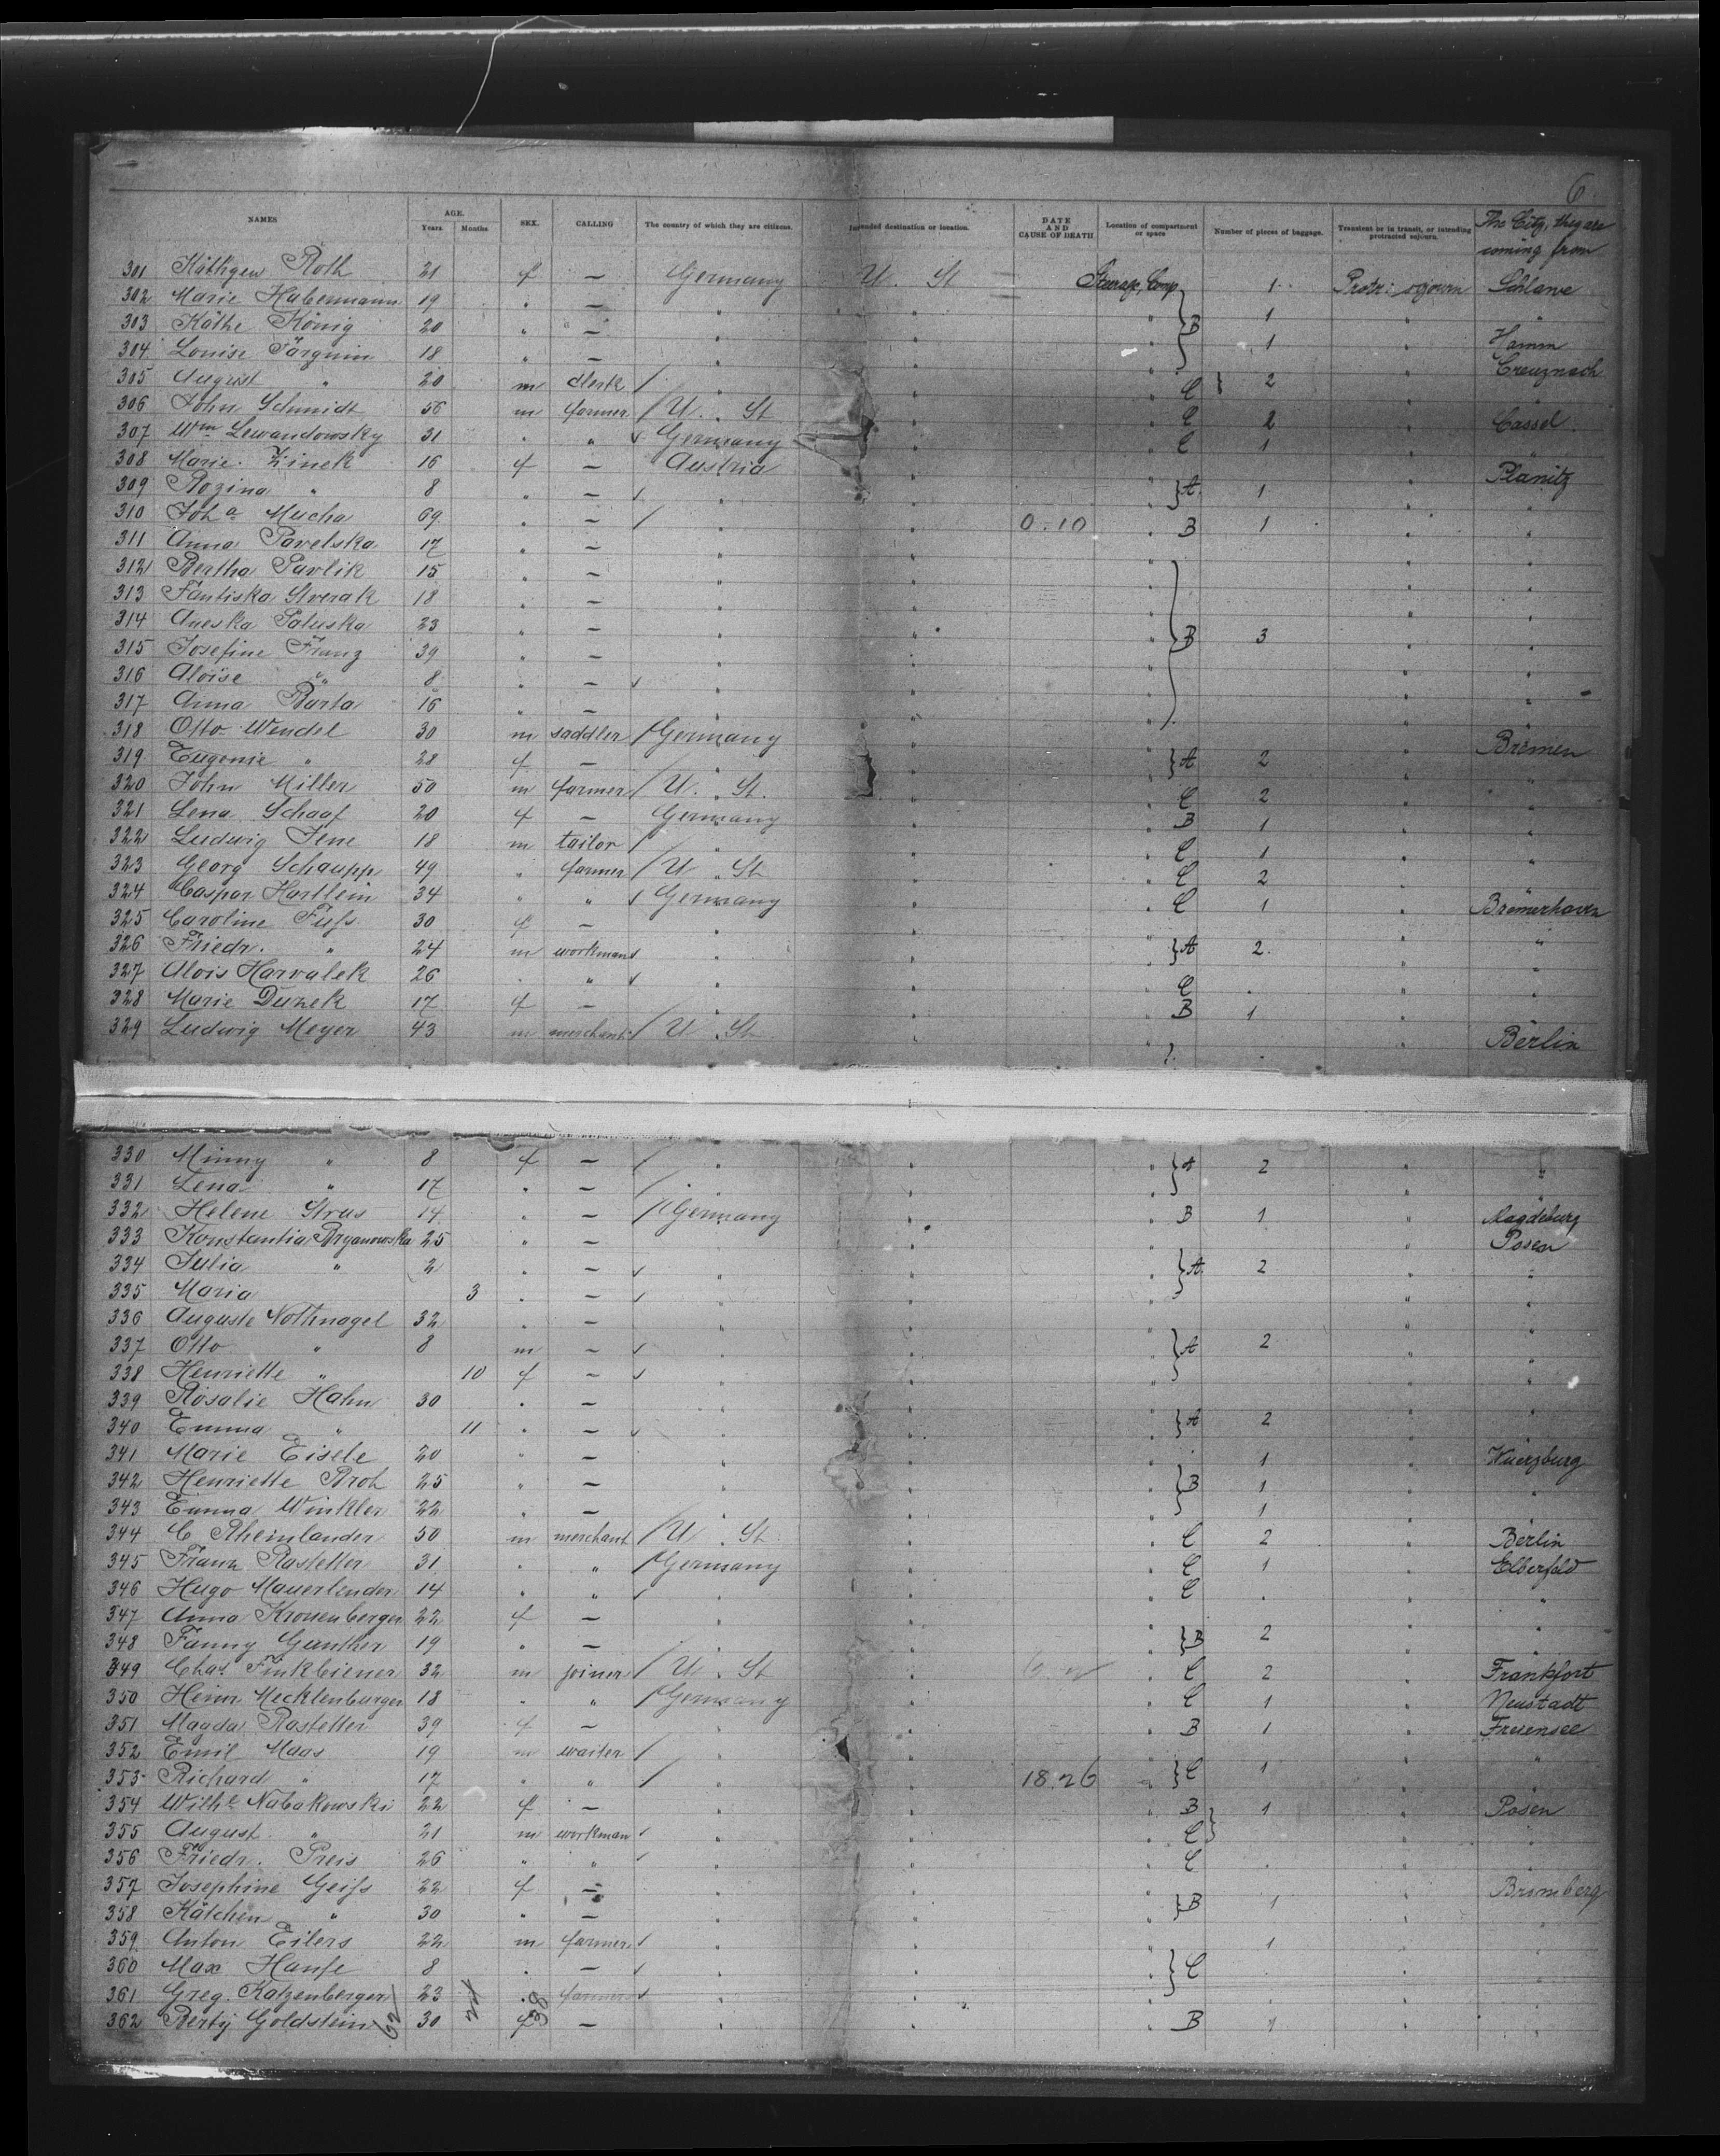 6
NAMES AGE. Years Months SEX. CALLING The country of which they are citizens. Intended destination or location. DATE AND CAUSE OF DEATH Location of compartment or space Number of pieces of baggage. Transient or in transit, or intending protracted sojourn. The City, they are coming from
301 Käthgen Roth 21 f — Germany U. St Steerage, Comp 1 Protr: sojourn
302 Marie Habermann 19 " — " " " 1 " "
303 Käthe König 20 " — " " " B 1 " Hamm
304 Louise 18 " — " " " " Creuznach
305 August " 20 m clerk / " " " C 2 " "
306 John Schmidt 56 m farmer / U. St " " C 2 " Cassel
307 Wm Lewandowsky 31 " " ✓ Germany " " C 1 " "
308 Marie Zinek 16 f — Austria " " " Planitz
309 Rozina " 8 " — ✓ " " " A 1 " "
310 Joha Mucha 69 " — / " " 0.10 " B 1 " "
311 Anna Pavelska 17 " — " " " " "
312 Bertha Pavlik 15 " — " " " " "
313 Fantiska Sverak 18 " — " " " " "
314 Aneska Paluska 23 " — " " " B 3 " "
315 Josefine Franz 39 " — " " " " "
316 Aloise " 8 " — ✓ " " " " "
317 Anna Barta 16 " — " " " " "
318 Otto Wendel 30 m saddler / Germany " " " Bremen
319 Eugenie " 28 f — " " " A 2 " "
320 John Miller 50 m farmer / U. St. " " C 2 " "
321 Lena Schaaf 20 f — Germany " " B 1 " "
322 Ludwig Jene 18 m tailor / " " " C 1 " "
323 Georg Schaupp 49 " farmer / U. St " " C 2 " "
324 Caspar Hartlein 34 " " ✓ Germany " " C 1 " Bremerhaven
325 Caroline Fuß 30 f — " " " " "
326 Friedr. " 24 m workman ✓ " " " A 2 " "
327 Alois Harvalek 26 " " ✓ " " " C . " "
328 Marie Duzek 17 f — " " " B 1 " "
329 Ludwig Meyer 43 m merchant / U. St " " " Berlin
330 Minny " 8 f — / " " " A 2 " "
331 Lena " 17 " — / " " " " "
332 Helene Strus 14 " — / Germany " " B 1 " Magdeburg
333 Konstantia Bryanowska 25 " — " " " " Posen
334 Julia " 2 " — ✓ " " " A 2 " "
335 Maria 3 " — ✓ " " " " "
336 Auguste Nothnagel 32 " — " " " " "
337 Otto " 8 m — ✓ " " " A 2 " "
338 Henriette " 10 f — ✓ " " " " "
339 Rosalie Hahn 30 " — " " " " "
340 Emma " 11 " — ✓ " " " A 2 " "
341 Marie Eisele 20 " — " " " 1 " Wuerzburg
342 Henriette Broh 25 " — " " " B 1 " "
343 Emma Winkler 22 " — " " " 1 " "
344 C Rheinlander 50 m merchant / U. St " " C 2 " Berlin
345 Franz Rastetter 31 " " / Germany " " C 1 " Elberfeld
346 Hugo Mauerlender 14 " " ✓ " " " C . " "
347 Anna Kronenberger 22 f — " " " " "
348 Fanny Gunther 19 " — " " " B 2 " "
349 Chas Finkbiener 32 m joiner / U. St " " C 2 " Frankfort
350 Heinr Mecklenburger 18 " " / Germany " " C 1 " Neustadt
351 Magda Rastetter 39 f — " " " B 1 " Freiensee
352 Emil Maas 19 m waiter / " " " " "
353 Richard " 17 " " / " " 18.26 " C 1 " "
354 Wilhe Nabakowski 22 f — " " " B 1 " Posen
355 August " 21 m workman ✓ " " " C " "
356 Friedr. Preis 26 " " ✓ " " " C . " "
357 Josephine Geiß 22 f — " " " " Bromberg
358 Kätchen " 30 " — " " " B 1 " "
359 Anton Eilers 22 m farmer ✓ " " " 1 " "
360 Max Hanse 8 " — ✓ " " " C . " "
361 Greg. Katzenberger 23 " farmer ✓ " " " . " "
362 Berty Goldstein 30 f — " " " B 1 " "
62 24 38